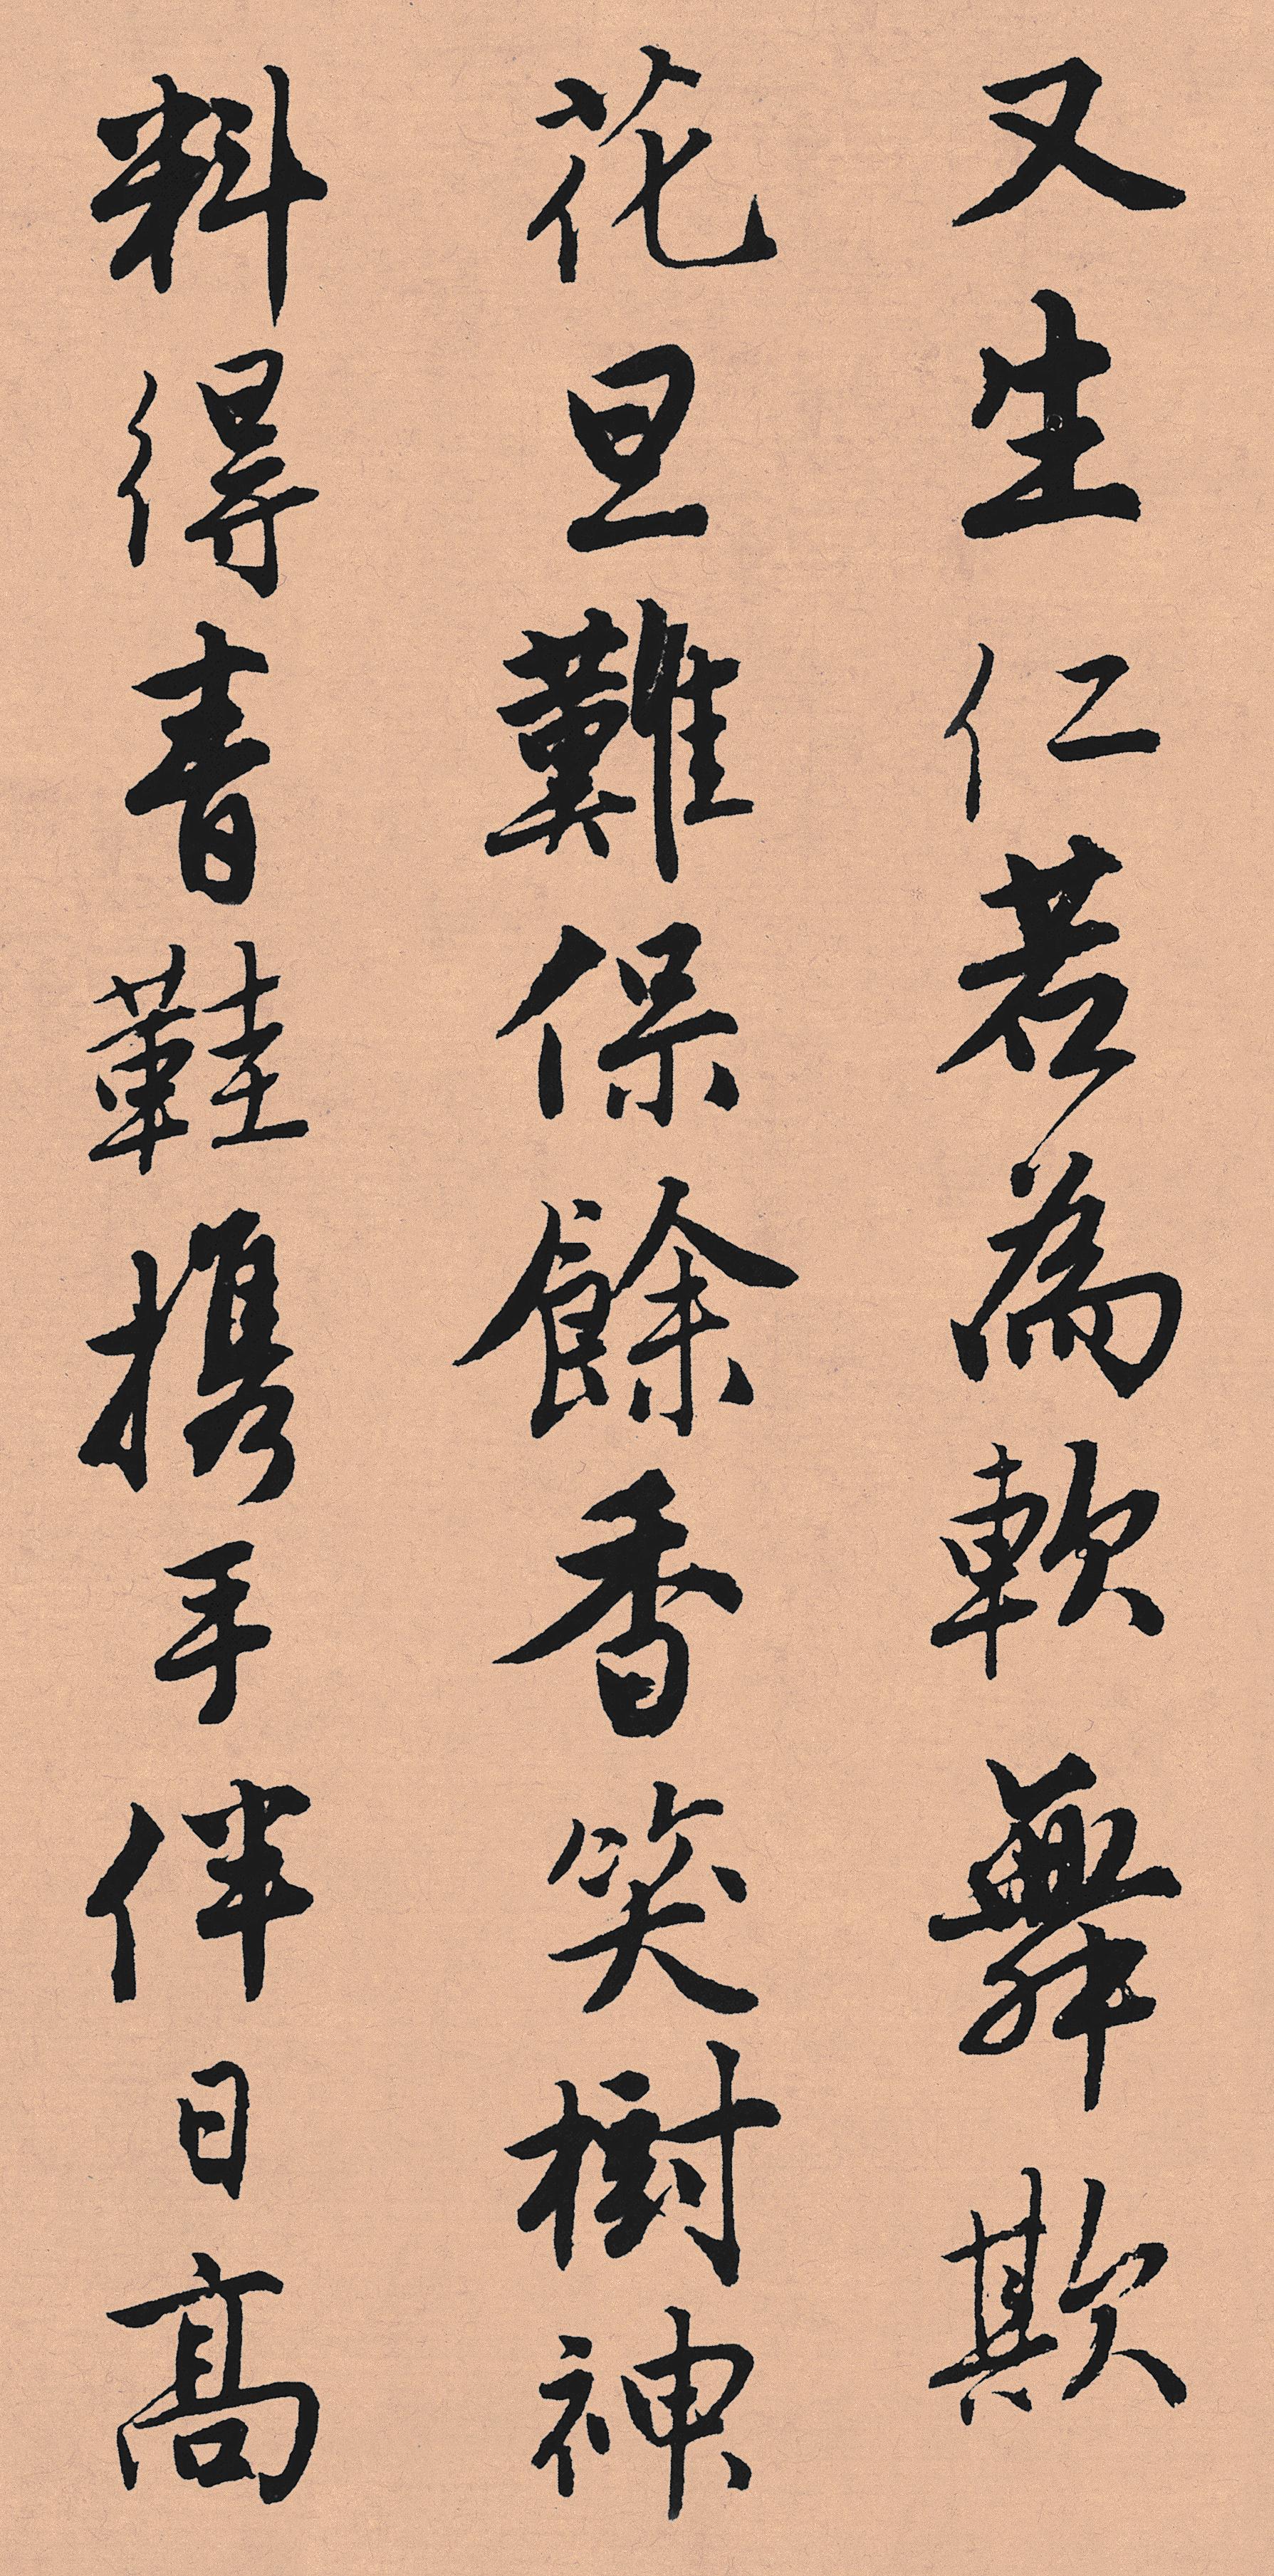 又生仁若為軟舞欺
花旦難保餘香笑樹神
料得青鞋携手伴日高